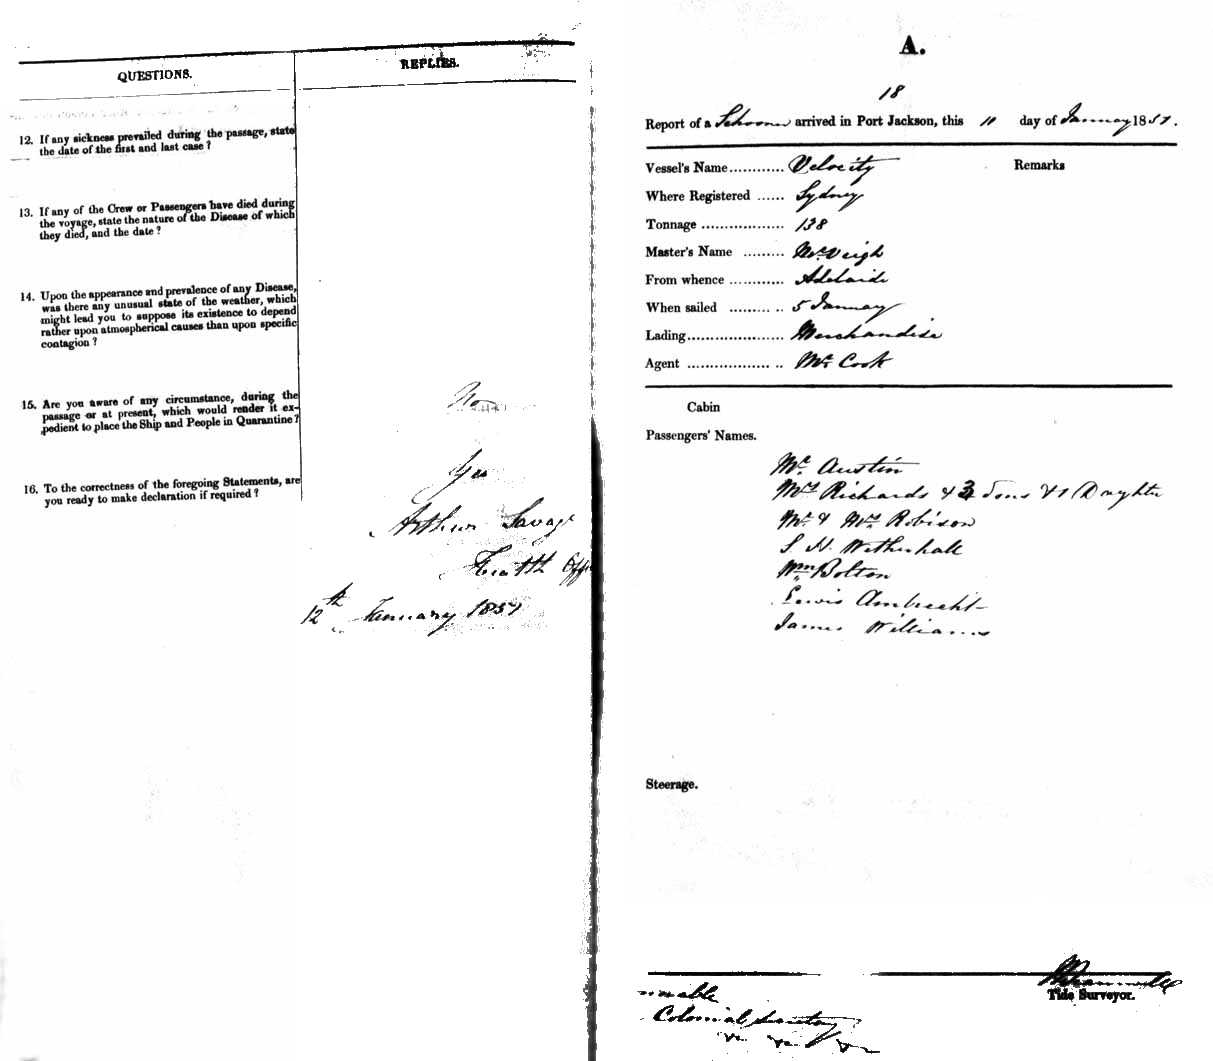 QUESTIONS.
REPLIES.
12. If any sickness prevailed during the passage, state
the date of the first and last case?
13. If any of the Crew or Passengers have died during
the voyage, state the nature of the Disease of which
they died, and the date?
14. Upon the appearance and prevalence of any Disease,
was there any unusual state of the weather, which
might lead you to suppose its existence to depend
rather upon atmospherical causes than upon specific
contagion?
15. Are you aware of any circumstance, during the
passage or at present, which would render it ex-
pedient to place the Ship and People in Quarantine?
No
16. To the correctness of the foregoing Statements, are
you ready to make declaration if required?
Yes
Arthur Savage
Health Offi
12th January 1851
A.
18
Report of a Schooner arrived in Port Jackson, this 11 day of January 1851.
Vessel's Name............ Velocity
Remarks
Where Registered ...... Sydney
Tonnage .................. 138
Master's Name ......... McVeigh
From whence ............ Adelaide
When sailed ......... .. 5 January
Lading...................... Merchandise
Agent .................. .. Mr Cook
Cabin
Passengers' Names.
Mr. Austin
Mrs Richards & 3 Sons & 1 Daughter
Mr. & Mrs Robison
S. H. Witherhall
Wm Bolton
Lewis Ambrecht
James Williams
Steerage.
Tide Surveyor.
Colonial Secretary